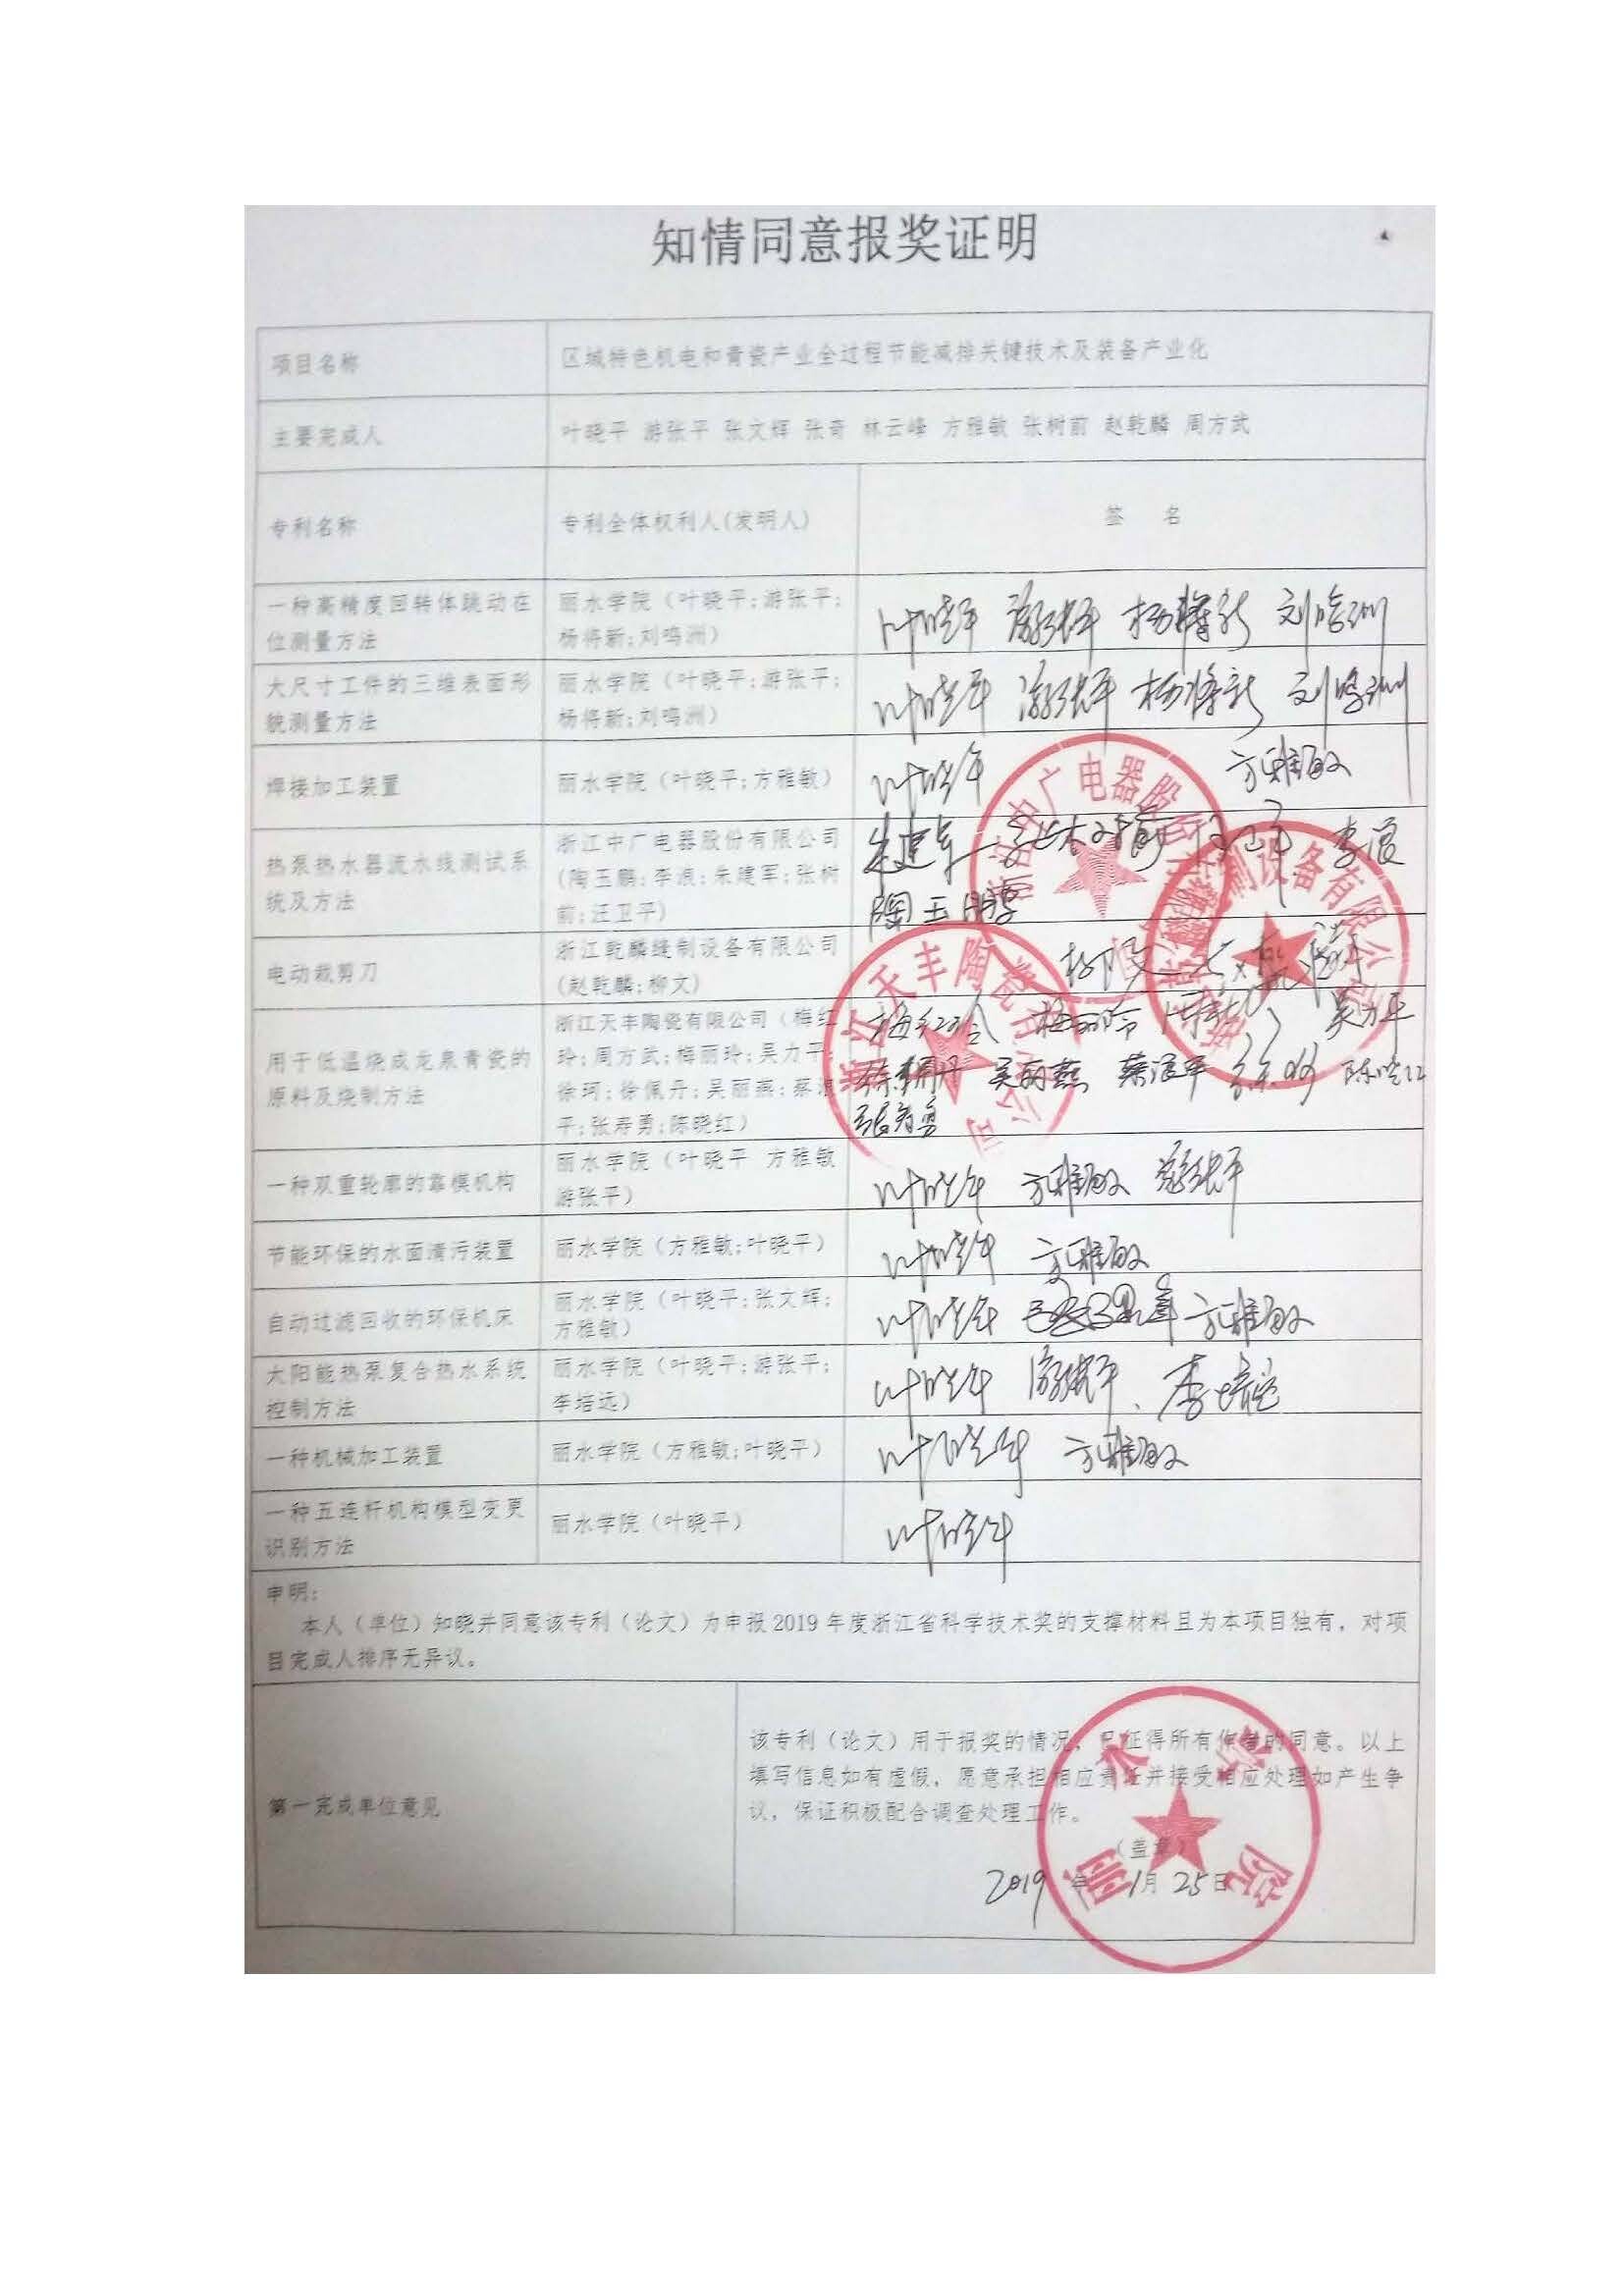 知情同意报奖证明
项目名称
区域特色机电和青瓷产业全过程节能减排关键技术及装备产业化
主要完成人
叶晓平 游张平 张文辉 张奇 林云峰 方雅敏 张树前 赵乾麟 周方武
专利名称
专利全体权利人(发明人)
签 名
一种高精度回转体跳动在
位测量方法
丽水学院（叶晓平;游张平;
杨将新;刘鸣洲）
叶晓平 游张平 杨将新 刘鸣洲
大尺寸工件的三维表面形
貌测量方法
丽水学院（叶晓平;游张平;
杨将新;刘鸣洲）
叶晓平 游张平 杨将新 刘鸣洲
焊接加工装置
丽水学院（叶晓平;方雅敏）
叶晓平 方雅敏
热泵热水器流水线测试系
统及方法
浙江中广电器股份有限公司
(陶玉鹏;李浪;朱建军;张树
前;汪卫平)
朱建军 张树前 李浪
陶玉鹏
电动裁剪刀
浙江乾麟缝制设备有限公司
(赵乾麟;柳文)
柳文 赵乾麟
用于低温烧成龙泉青瓷的
原料及烧制方法
浙江天丰陶瓷有限公司（梅红
玲;周方武;梅丽玲;吴力平;
徐珂;徐佩丹;吴丽燕;蔡浪
平;张寿勇;陈晓红）
梅红玲 梅丽玲 周方武 吴力平
徐佩丹 吴丽燕 蔡浪平 徐珂 陈晓红
张寿勇
一种双重轮廓的靠模机构
丽水学院（叶晓平 方雅敏
游张平）
叶晓平 方雅敏 游张平
节能环保的水面清污装置
丽水学院（方雅敏;叶晓平）
叶晓平 方雅敏
自动过滤回收的环保机床
丽水学院（叶晓平;张文辉;
方雅敏）
叶晓平 方雅敏
太阳能热泵复合热水系统
控制方法
丽水学院（叶晓平;游张平;
李培远）
叶晓平 游张平、李培远
一种机械加工装置
丽水学院（方雅敏;叶晓平）
叶晓平 方雅敏
一种五连杆机构模型变更
识别方法
丽水学院（叶晓平）
叶晓平
申明：
本人（单位）知晓并同意该专利（论文）为申报2019年度浙江省科学技术奖的支撑材料且为本项目独有，对项
目完成人排序无异议。
第一完成单位意见
该专利（论文）用于报奖的情况，已征得所有作者的同意。以上
填写信息如有虚假，愿意承担相应责任并接受相应处理如产生争
议，保证积极配合调查处理工作。
（盖章）
2019 年 1月 25日
丽水学院